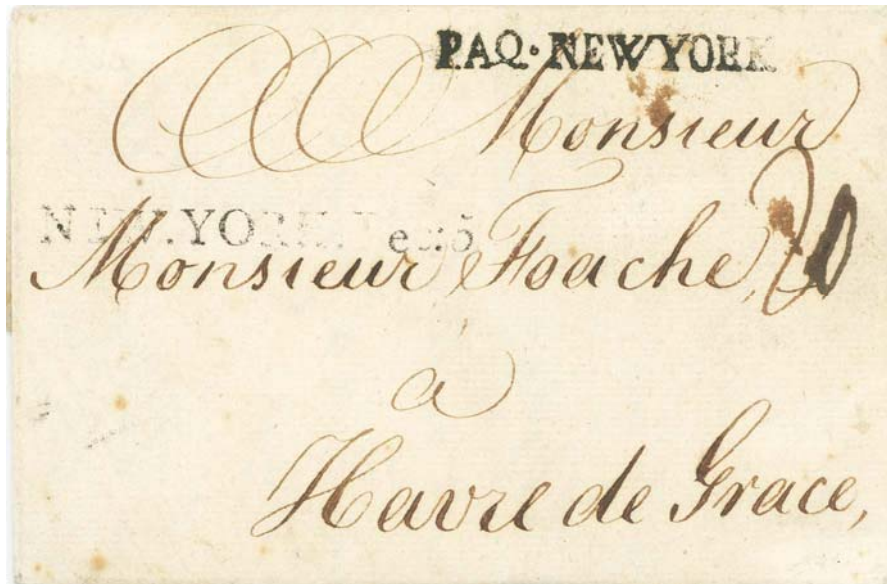 PAQ·NEWYORK
Monsieur
NEW.YORK
Monsieur Foache,
a
Havre de Grace,